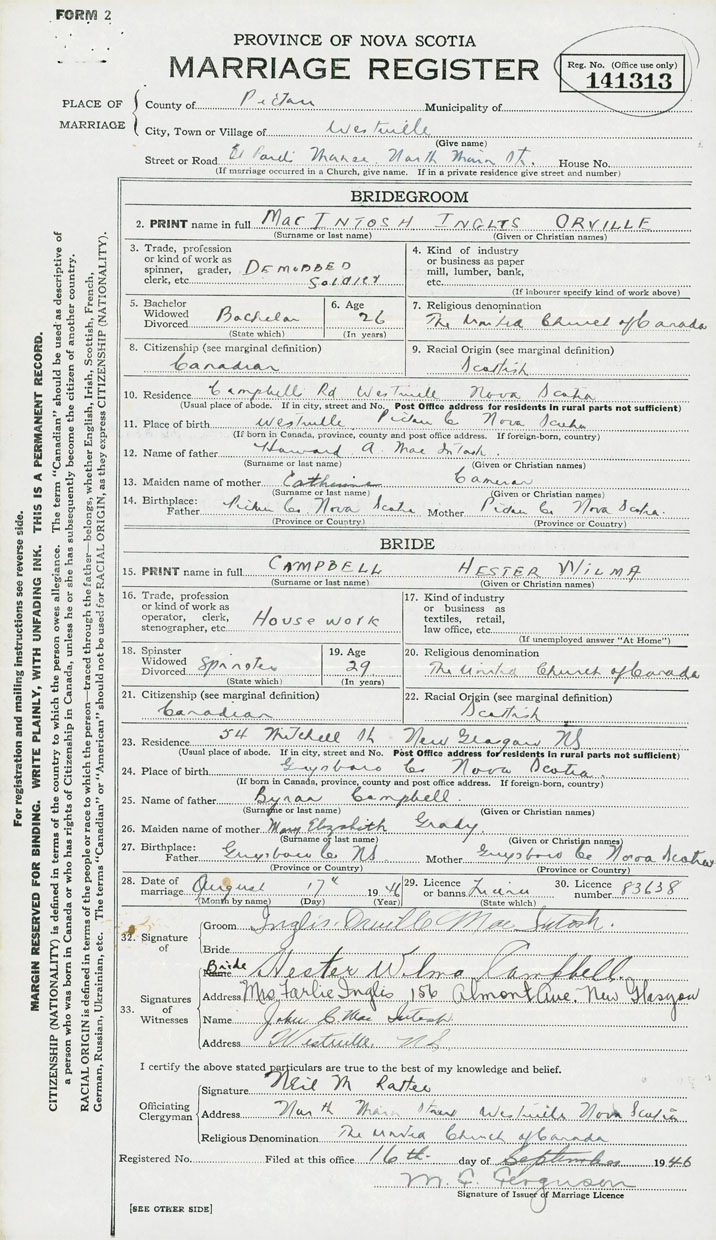 FORM 2
PROVINCE OF NOVA SCOTIA
MARRIAGE REGISTER
Reg. No. (Office use only)
141313
PLACE OF MARRIAGE
County of Pictou Municipality of
City, Town or Village of Westville
(Give name)
Street or Road St Pauls Manse North Main St. House No.
(If marriage occurred in a Church, give name. If in a private residence give street and number)
BRIDEGROOM
2. PRINT name in full MacINTOSH INGLIS ORVILLE
(Surname or last name) (Given or Christian names)
3. Trade, profession or kind of work as spinner, grader, clerk, etc. DEMOBBED SOLDIER
4. Kind of industry or business as paper mill, lumber, bank, etc.
(If labourer specify kind of work above)
5. Bachelor Widowed Divorced Bachelor
(State which)
6. Age 26
(In years)
7. Religious denomination
The United Church of Canada
8. Citizenship (see marginal definition)
Canadian
9. Racial Origin (see marginal definition)
Scottish
10. Residence Campbell Rd Westville Nova Scotia
(Usual place of abode. If in city, street and No. Post Office address for residents in rural parts not sufficient)
11. Place of birth Westville Pictou Co Nova Scotia
(If born in Canada, province, county and post office address. If foreign-born, country)
12. Name of father Howard A. MacIntosh.
(Surname or last name) (Given or Christian names)
13. Maiden name of mother Catherine Cameron
(Surname or last name) (Given or Christian names)
14. Birthplace: Father Pictou Co Nova Scotia Mother Pictou Co Nova Scotia.
(Province or Country) (Province or Country)
BRIDE
15. PRINT name in full CAMPBELL HESTER WILMA
(Surname or last name) (Given or Christian names)
16. Trade, profession or kind of work as operator, clerk, stenographer, etc. HOUSE WORK
17. Kind of industry or business as textiles, retail, law office, etc.
(If unemployed answer "At Home")
18. Spinster Widowed Divorced Spinster
(State which)
19. Age 29
(In years)
20. Religious denomination
The United Church of Canada
21. Citizenship (see marginal definition)
Canadian
22. Racial Origin (see marginal definition)
Scottish
23. Residence 54 Mitchell St New Glasgow NS
(Usual place of abode. If in city, street and No. Post Office address for residents in rural parts not sufficient)
24. Place of birth Guysboro Co Nova Scotia.
(If born in Canada, province, county and post office address. If foreign-born, country)
25. Name of father Byron Campbell.
(Surname or last name) (Given or Christian names)
26. Maiden name of mother Mary Elizabeth Grady.
(Surname or last name) (Given or Christian names)
27. Birthplace: Father Guysboro Co NS. Mother Guysboro Co Nova Scotia
(Province or Country) (Province or Country)
28. Date of marriage August 17th 1946
(Month by name) (Day) (Year)
29. Licence or banns Licence
(State which)
30. Licence number 83638
32. Signature of
Groom Inglis Orville MacIntosh.
Bride
Bride Name Hester Wilma Campbell.
33. Signatures of Witnesses
Address Mrs Farlie Inglis 156 Almont Ave. New Glasgow
Name John C MacIntosh
Address Westville NS
I certify the above stated particulars are true to the best of my knowledge and belief.
Officiating Clergyman
Signature Neil M Rattee
Address North Main Street Westville Nova Scotia
Religious Denomination The United Church of Canada
Registered No. Filed at this office 16th day of September 1946
M. C. Ferguson
Signature of Issuer of Marriage Licence
[SEE OTHER SIDE]
For registration and mailing instructions see reverse side.
MARGIN RESERVED FOR BINDING. WRITE PLAINLY, WITH UNFADING INK. THIS IS A PERMANENT RECORD.
CITIZENSHIP (NATIONALITY) is defined in terms of the country to which the person owes allegiance. The term "Canadian" should be used as descriptive of
a person who was born in Canada or who has rights of Citizenship in Canada, unless he or she has subsequently become the citizen of another country.
RACIAL ORIGIN is defined in terms of the people or race to which the person—traced through the father—belongs, whether English, Irish, Scottish, French,
German, Russian, Ukrainian, etc. The terms "Canadian" or "American" should not be used for RACIAL ORIGIN, as they express CITIZENSHIP (NATIONALITY).